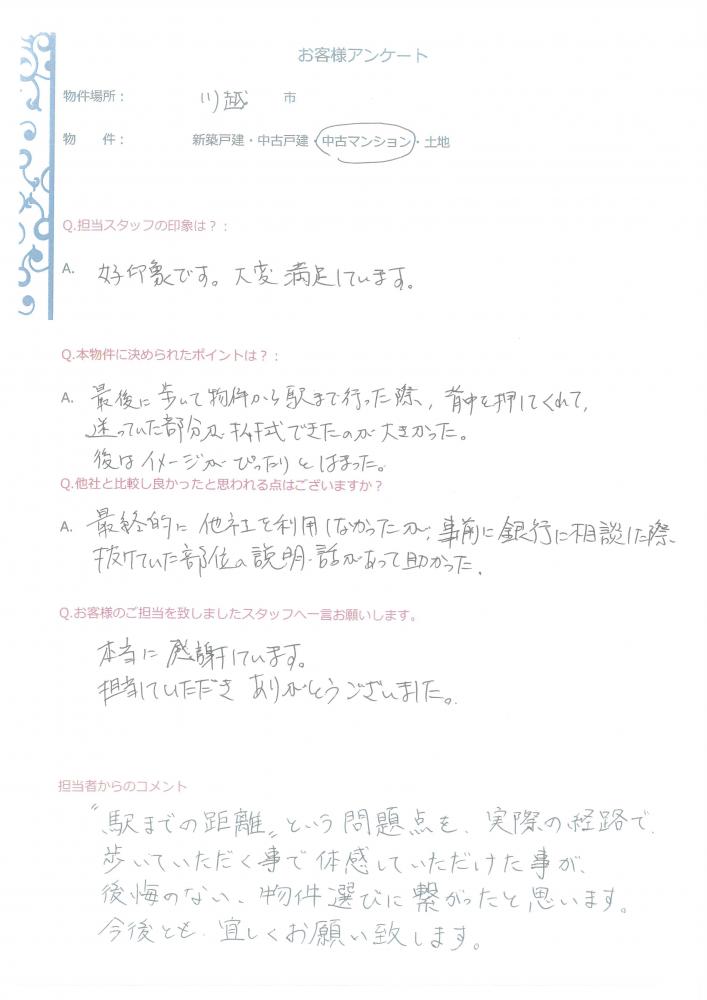 お客様アンケート
物件場所： 川越 市
物　件： 新築戸建・中古戸建・中古マンション・土地
Q.担当スタッフの印象は？：
A. 好印象です。大変満足しています。
Q.本物件に決められたポイントは？：
A. 最後に歩いて物件から駅まで行った際、背中を押してくれて、
迷っていた部分が できたのが大きかった。
後はイメージがぴったりとはまった。
Q.他社と比較し良かったと思われる点はございますか？
A. 最終的に他社を利用しなかったが、事前に銀行に相談した際、
抜けていた部位の説明・話があって助かった.
Q.お客様のご担当を致しましたスタッフへ一言お願いします。
本当に感謝しています。
担当していただきありがとうございました。
担当者からのコメント
〝駅までの距離〟という問題点を、実際の経路で
歩いていただく事で体感していただけた事が、
後悔のない、物件選びに繋がったと思います。
今後とも、宜しくお願い致します。